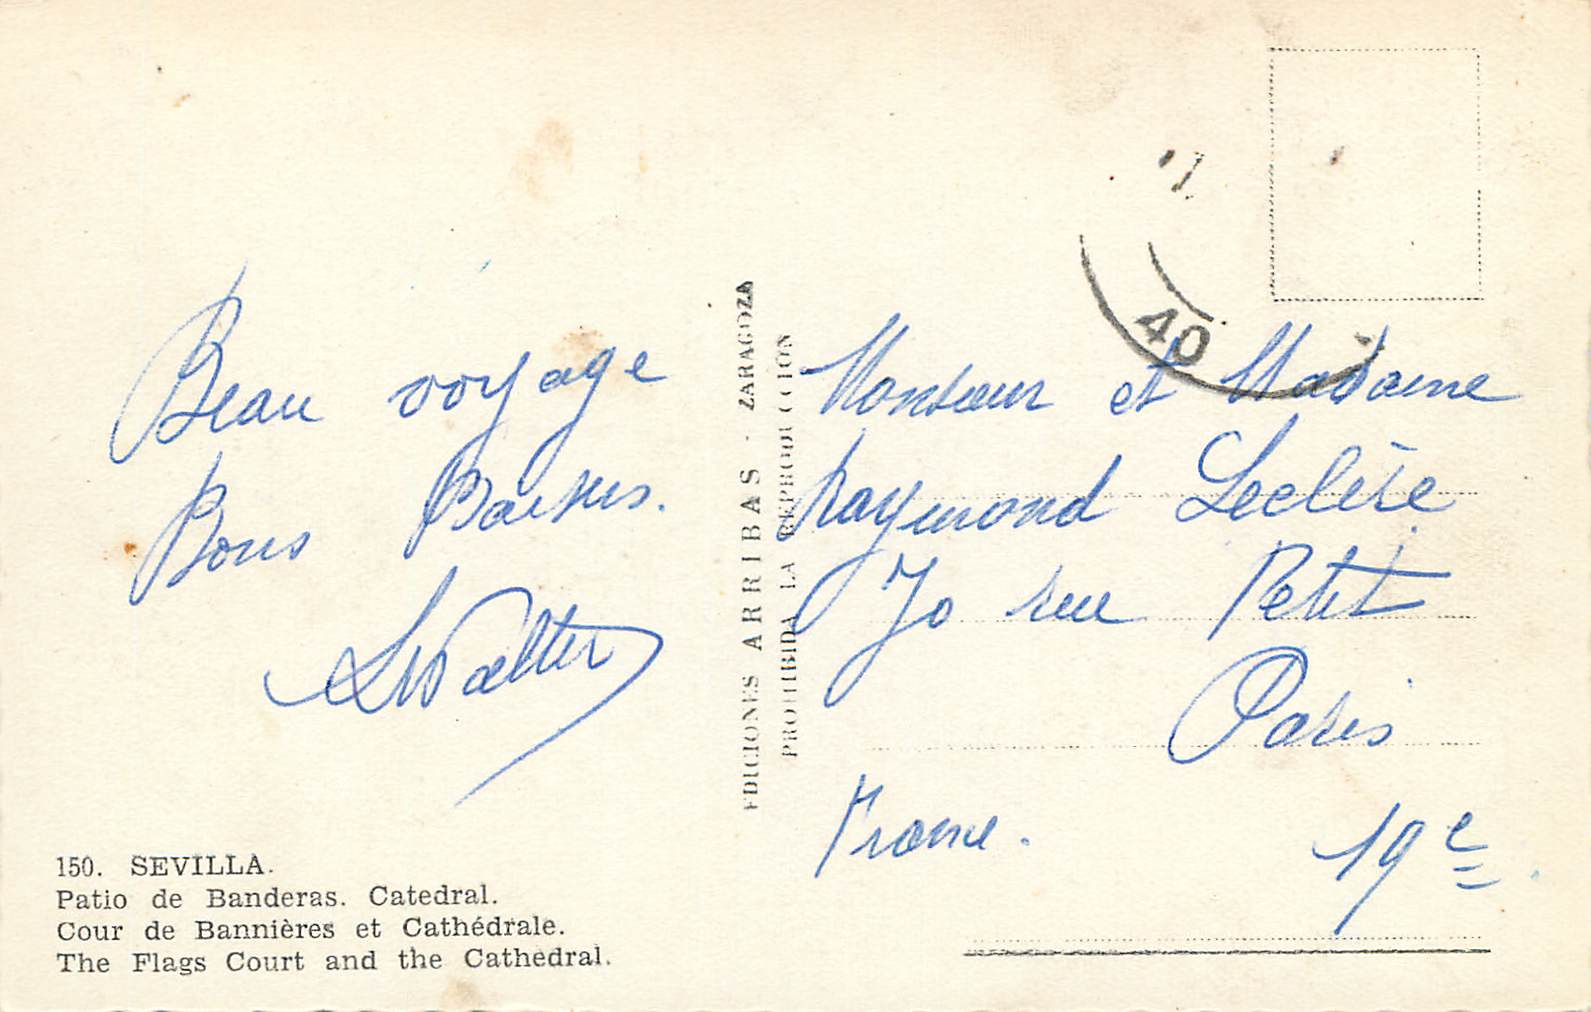 Beau voyage
Bons Baisers.
LWalter
150. SEVILLA.
Patio de Banderas. Catedral.
Cour de Bannières et Cathédrale.
The Flags Court and the Cathedral.
EDICIONES ARRIBAS - ZARAGOZA
PROHIBIDA LA REPRODUCCION
40
Monsieur et Madame
Raymond Leclère
70 rue Petit
Paris
France. 19e